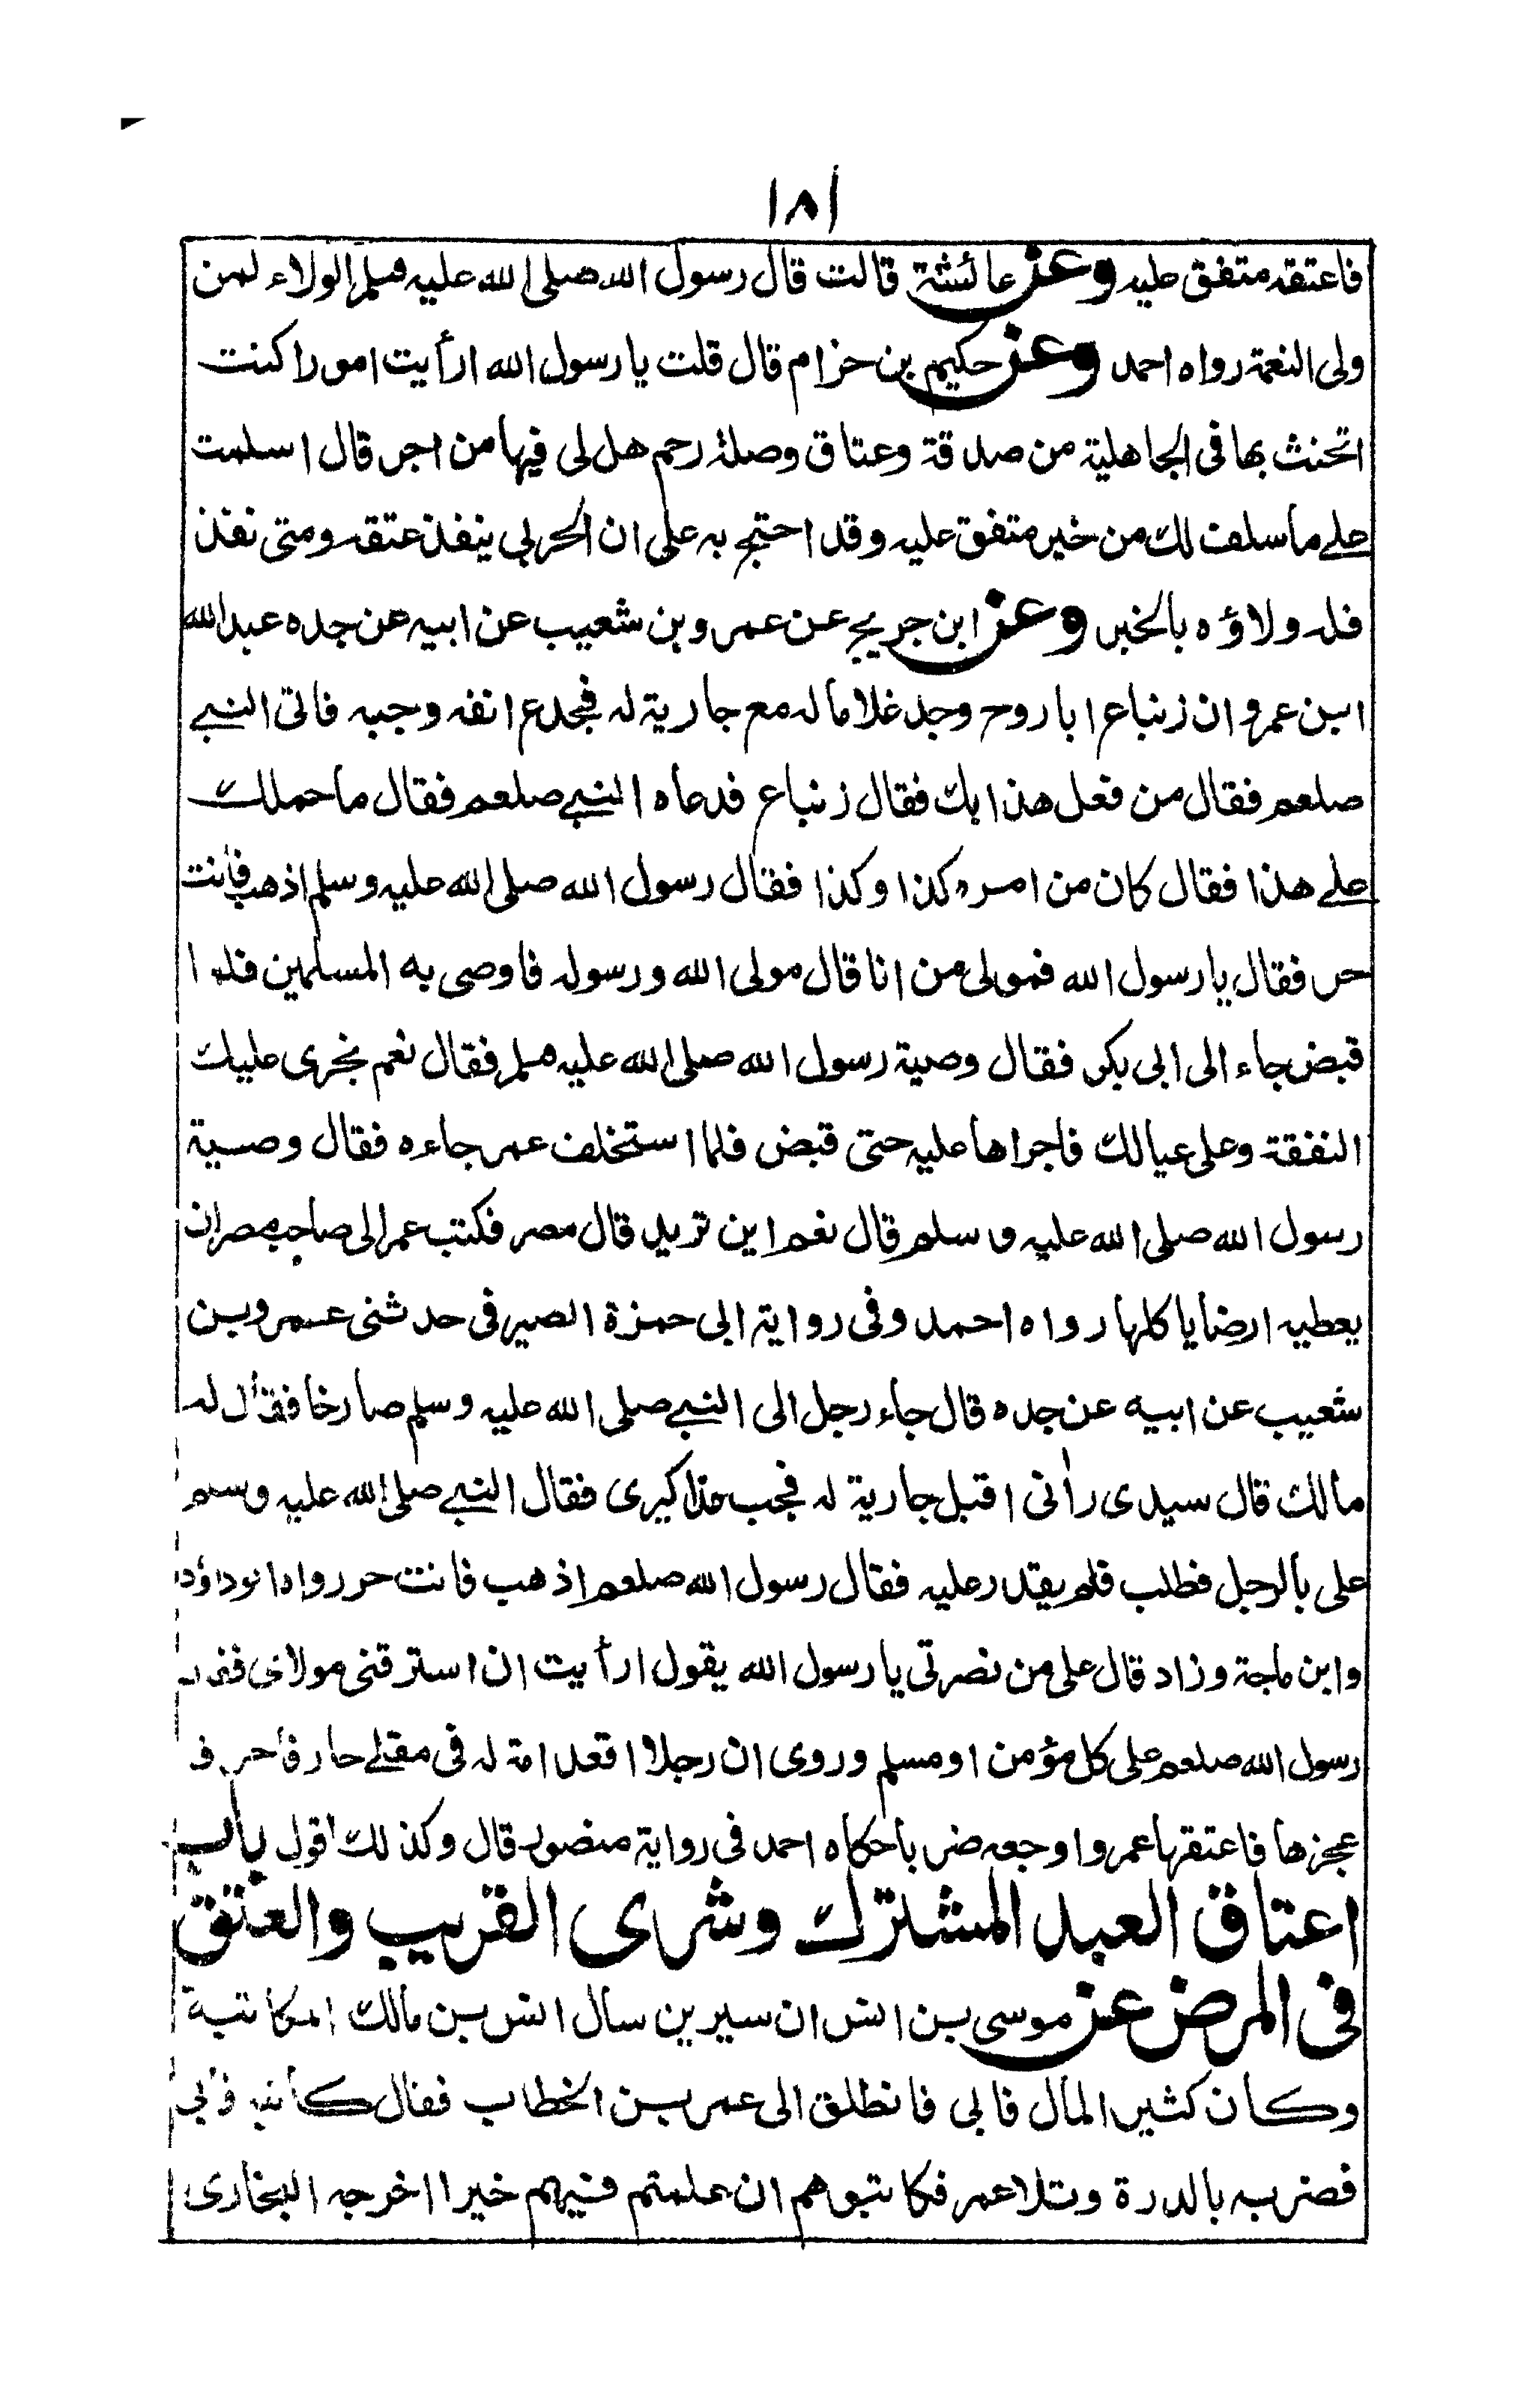 ١٨١
فاعتقه متفق عليه وعن عائشة قالت قال رسول الله صلى الله عليه وسلم الولاء لمن
ولى النعمة رواه احمد وعن حكيم بن حزام قال قلت يا رسول الله ارأيت امورا كنت
اتحنث بها فى الجاهلية من صدقة وعتاق وصلة رحم هل لى فيها من اجر قال اسلمت
على ما سلف لك من خير متفق عليه وقد احتج به على ان الحربي ينفذ عتقه ومتى نفذ
فله ولاؤه بالخبر وعن ابن جريج عن عمرو بن شعيب عن ابيه عن جده عبد الله
ابن عمرو ان زنباع ابا روح وجد غلاما له مع جارية له فجدع انفه وجبه فاتى النبي
صلعم فقال من فعل هذا بك فقال زنباع فدعاه النبي صلعم فقال ما حملك
على هذا فقال كان من امره كذا وكذا فقال رسول الله صلى الله عليه وسلم اذهب فأنت
حر فقال يا رسول الله فمولى من انا قال مولى الله ورسوله فاوصى به المسلمين فلما
قبض جاء الى ابى بكر فقال وصية رسول الله صلى الله عليه وسلم فقال نعم نجرى عليك
النفقة وعلى عيالك فاجراها عليه حتى قبض فلما استخلف عمر جاءه فقال وصية
رسول الله صلى الله عليه و سلم قال نعم اين تريد قال مصر فكتب عمر الى صاحب مصر ان
يعطيه ارضا يا كلها رواه احمد وفى رواية ابى حمزة الصيرفى حدثنى عمرو بن
شعيب عن ابيه عن جده قال جاء رجل الى النبي صلى الله عليه وسلم صارخا فقال له
مالك قال سيدى رأنى اقبل جارية له فجب مذاكيرى فقال النبي صلى الله عليه وسلم
على بالرجل فطلب فلم يقدر عليه فقال رسول الله صلعم اذهب فانت حر رواه ابوداؤد
وابن ماجة وزاد قال على من نصرتى يا رسول الله يقول ارأيت ان استرقنى مولاى فقال
رسول الله صلعم على كل مؤمن او مسلم وروى ان رجلا اقعد امة له فى مقلى حار فأحرق
عجزها فاعتقها عمر واوجعه ضربا حكاه احمد فى رواية منصور قال وكذلك اقول باب
اعتاق العبد المشترك وشرى القريب والعتق
فى المرض عن موسى بن انس ان سيرين سال انس بن مالك المكاتبة
وكان كثير المال فابى فانطلق الى عمر بن الخطاب فقال كاتبه فأبى
فضربه بالدرة وتلا عمر فكاتبوهم ان علمتم فيهم خيرا اخرجه البخارى